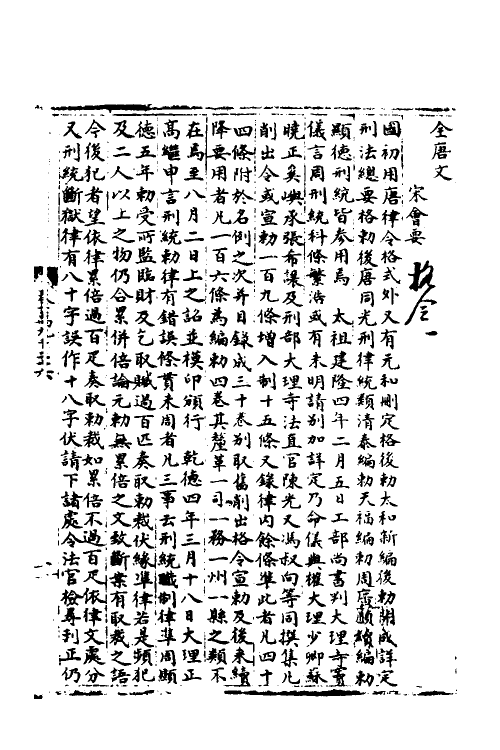 全唐文
宋會要
格令一
國初用唐律令格式外又有元和刪定格後勅太和新編後勅開成詳定
刑法總要格勅後唐同光刑律統類清泰編勅天福編勅周廣順續編勅
顯德刑統皆參用焉 太祖建隆四年二月五日工部尚書判大理寺竇
儀言周刑統科條繁浩或有未明請別加詳定乃命儀與權大理少卿蘇
曉正奚嶼承張希讓及刑部大理寺法直官陳光乂馮叔向等同撰集凡
削出令或宣勅一百九條增入制十五條又錄律內餘條準此者凡四十
四條附於名例之次并目錄成三十卷別取舊削出格令宣勅及後來續
降要用者凡一百六條爲編勅四卷其釐革一司一務一州一縣之類不
在焉至八月二日上之詔並模印頒行 乾德四年三月十八日大理正
高繼申言刑統勅律有錯誤條貫未周者凡三事云刑統職制律準周顯
德五年勅受所監臨財及乞取贓過百匹奏取勅裁伏緣準律若是頻犯
及二人以上之物仍合累併倍論元勅無累倍之文致斷案有取裁之語
今後犯者望依律累倍過百疋奏取勅裁如累倍不過百疋依律文處分
又刑統斷獄律有八十字誤作十八字伏請下諸處令法官檢尋刊正仍